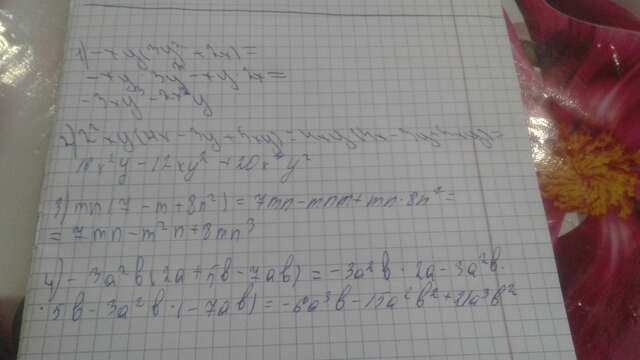 1) -xy(3y² + 2x) =
-xy · 3y² - xy · 2x =
-3xy³ - 2x²y
2) 2²xy(4x - 3y + 5xy) = 4xy(4x - 3y + 5xy) =
16x²y - 12xy² + 20x²y²
3) mn(7 - m + 8n²) = 7mn - mnm + mn · 8n² =
= 7mn - m²n + 8mn³
4) - 3a²b(2a + 5b - 7ab) = -3a²b · 2a - 3a²b ·
· 5b - 3a²b · (-7ab) = -6a³b - 15a²b² + 21a³b²